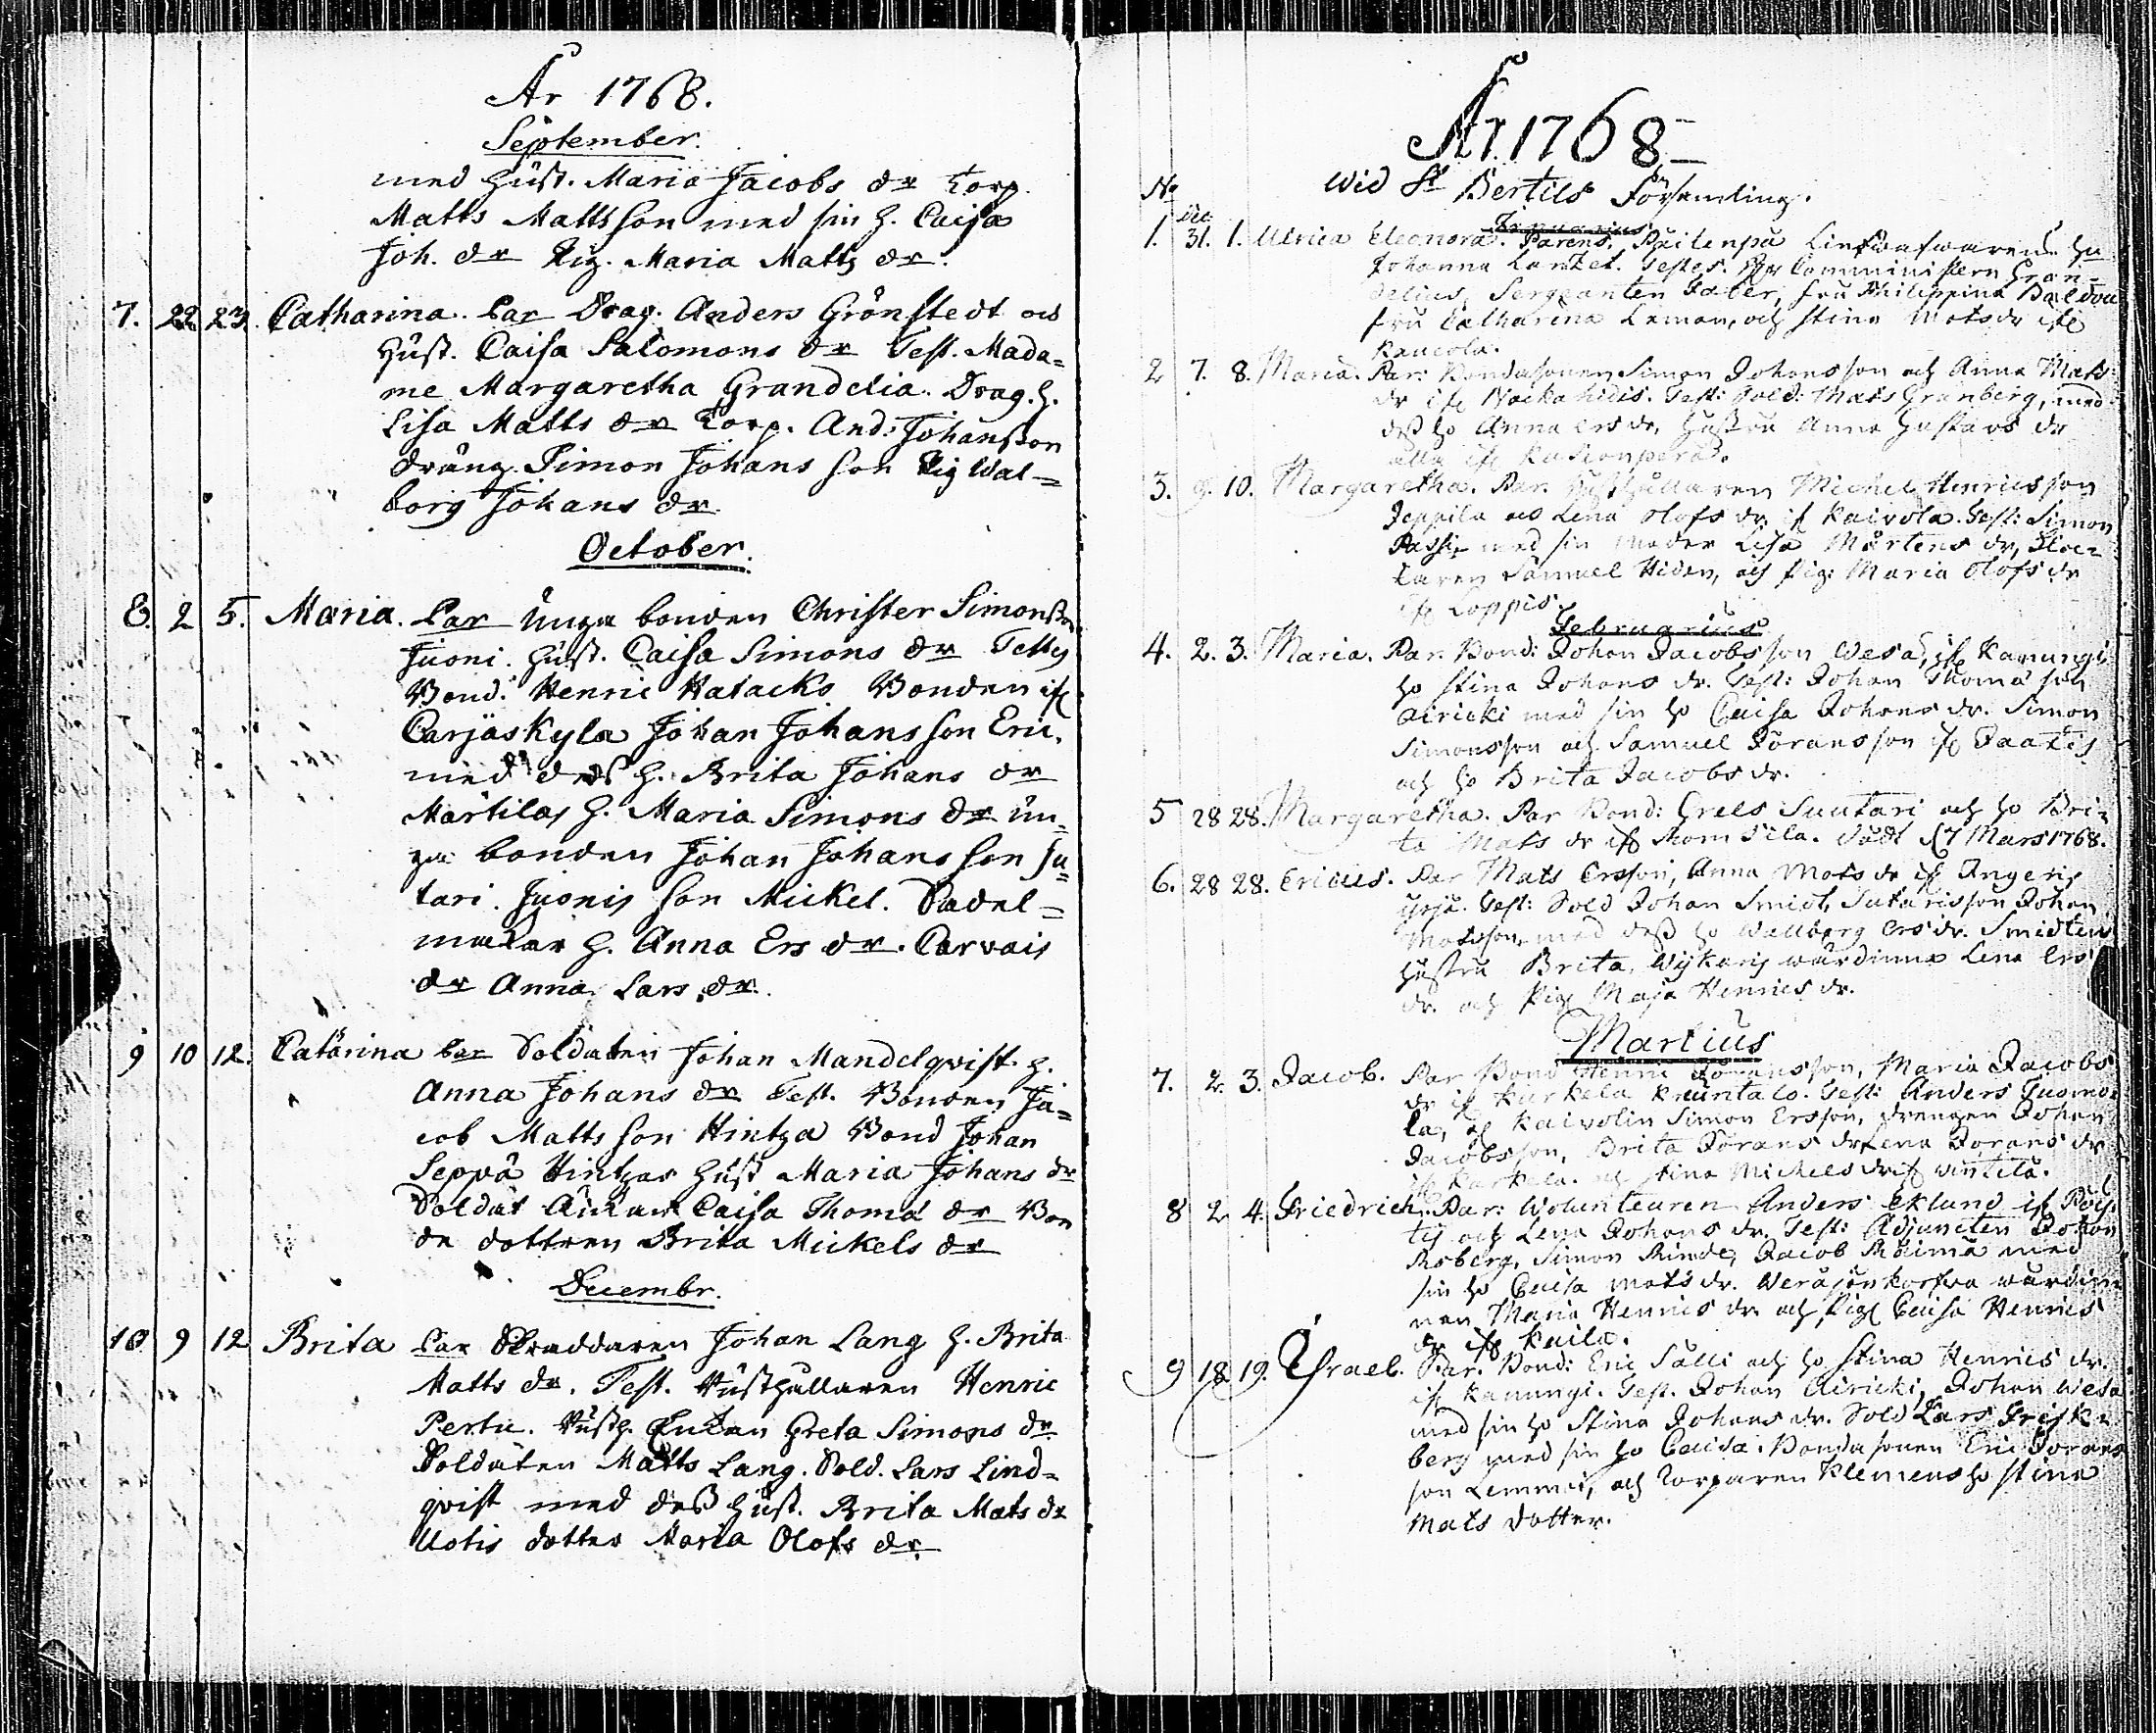 År 1768.
September.
med Hust. Maria Jacobs dr Torp.
Matts Mattsson med sin h. Caisa
Joh. dr Pig. Maria Matts dr.
7. 22 23. Catharina. Par Drag. Anders Grönstedt och
Hust. Caisa Salomons dr Test. Mada=
me Margaretha Grandelia. Drag. h.
Lisa Matts dr Torp. And: Johansson
dräng. Simon Johans son Pig Wal=
borg Johans dr.
October.
8. 2 5. Maria. Par Unga bonden Christer Simonsson
Juoni. Hust. Caisa Simons dr Testes
Bond. Henric Katacks Bonden if
Carjaskyla Johan Johansson Eric.
med dess h. Brita Johans dr
Martilas h. Maria Simons dr un=
ga bonden Johan Johans son Su=
tari. Juonis son Mickel. Sadel=
makar h. Anna Ers dr. Carvais
dr Anna Lars dr.
9 10 12. Catarina Par Soldaten Johan Mandelqvist. h.
Anna Johans dr Test. Bonden Ja=
cob Matts son Hintza Bond Johan
Seppä Hintzas Hust Maria Johans dr
Soldat Caisa Thoma dr Bon
de dottren Brita Mickels dr
Decembr.
10 9 12 Brita Par Skraddaren Johan Lang h. Brita
Matts dr. Test. Rusthållaren Henric
Pertu. Rusth. Enkan Greta Simons dr
Soldaten Matts Lang. Sold. Lars Lind=
qvist med dess Hust. Brita Mats dr
Uotis dotter Maria Olofs dr
År. 1768
Wid St Bertils Församling.
No
Dec
Januarius
1. 31. 1. Ulrica Eleonora. Parens, hu
Johanna Lantzet. Testes. Hr Comministern Gran=
delius, Sergeanten Faber, fru Philippina
fru Catharina Leman, och Stina Matsdr if
Kaucola.
2 7. 8. Maria. Par: Bondasonen Simon Johansson och Anna Mats
dr if Nockahiiis. Test: Sold: Mats Granberg, med
dess ho Anna Ersdr, Hustru Anna Gustavs dr
alla if
3. 9. 10. Margaretha. Par. Rusthållaren Michel Henricsson
Seppila och Lena Olofs dr. if Kaivola. Test: Simon
Passi, med sin moder Lisa Mårtens dr, Kloc=
karen Samuel Widen, och Pig: Maria Olofs dr
if Loppis.
Februarius
4. 2. 3. Maria. Par. Bond: Johan Jacobsson Wesa, if Kanungi
ho Stina Johans dr. Test: Johan Thoma son
Airicki med sin ho Caisa Johans dr. Simon
Simonsson och Samuel Jöransson if
och ho Brita Jacobs dr.
5 28 28. Margaretha. Par Bond: Grels Suutari och ho Bri=
ta Mats dr if Thomtila. Födt 7 Mars 1768.
6. 28 28. Ericus. Par Mats Ersson, Anna Mats dr if Angeri,
Test: Sold Johan Smidt, Sutaris son Johan
Matsson, med dess ho Wallberg Ers dr. Smidtens
hustru Brita, Wijkaris wärdinna Lena Ers
dr. och Pig Maja Henrics dr.
Martius
7. 2. 3. Jacob. Par Bond Henric Jöransson, Maria Jacobs
dr if Kurkela Kruntalo. Test: Anders Tuomo=
la, if Kaivolin Simon Ersson, drengen Johan
Jacobsson, Brita Jörans dr Lena Jorans dr
if Kurkela. och Stina Michels dr if Wintela.
8 2 4. Friedrich. Par: Wolunteuren Anders Eklund if Pöy=
tis och Lena Johans dr. Test: Adjuncten Johan
Asberg, Simon Rinde, Jacob Räimä med
sin ho Caisa Mats dr. wärdin=
nan Maria Henrics dr och Pig Caisa Henrics
dr if Kaila.
9 18 19. Israel. Par. Bond: Eric Sälli och ho Stina Henrics dr.
if Kanungi. Test. Johan Airicki, Johan Wesa
med sin ho Stina Johans dr. Sold Lars Frisk=
berg med sin ho Caisa. Bondasonen Eric Jorans
son Lemmei, och Torparen Klemens ho Stina
Mats dotter.